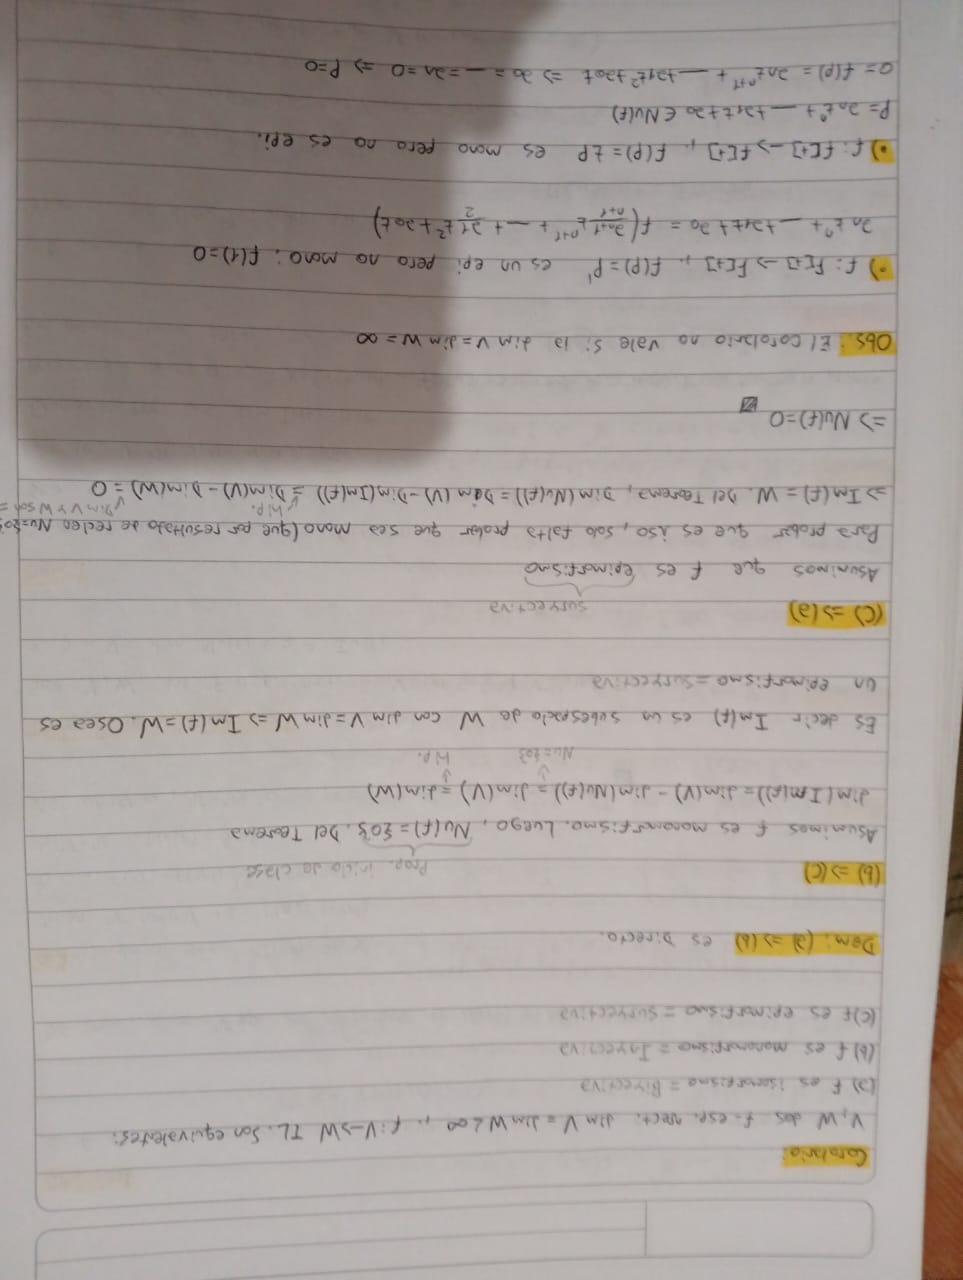 Corolario:
V, W dos F-esp. vect. dim V = dim W < ∞ ,, f: V -> W TL. Son equivalentes:
(a) f es isomorfismo = Biyectiva
(b) f es monomorfismo = Inyectiva
(c) f es epimorfismo = suryectiva
Dem: (a) => (b) es Directo.
(b) => (c)
Prop. inicio de clase
Asumimos f es monomorfismo. Luego, Nu(f) = {0}. Del Teorema
dim(Im(f)) = dim(V) - dim(Nu(f)) = dim(V) = dim(W)
Nu={0} Hip.
Es decir Im(f) es un subespacio de W con dim V = dim W => Im(f) = W. Osea es
un epimorfismo = suryectiva
(c) => (a)
suryectiva
Asumimos que f es epimorfismo
Para probar que es iso, solo falta probar que sea mono (que por resultado de recien Nu={0}
Hip. Dim V y W son =
=> Im(f) = W. Del Teorema, Dim(Nu(f)) = Dim(V) - Dim(Im(f)) = Dim(V) - Dim(W) = 0
=> Nu(f) = 0
Obs: El corolario no vale si la dim V = dim W = ∞
•) f: F[t] -> F[t] ,, f(p) = p' es un epi pero no mono: f(1) = 0
ant^n + --- + a1t + a0 = f(an+1/n+1 t^n+1 + --- + a1/2 t^2 + a0t)
•) f: F[t] -> F[t] ,, f(p) = tp es mono pero no es epi.
P = ant^n + --- + a1t + a0 ∈ Nu(f)
0 = f(p) = ant^n+1 + --- + a1t^2 + a0t => a0 = --- = an = 0 => P = 0